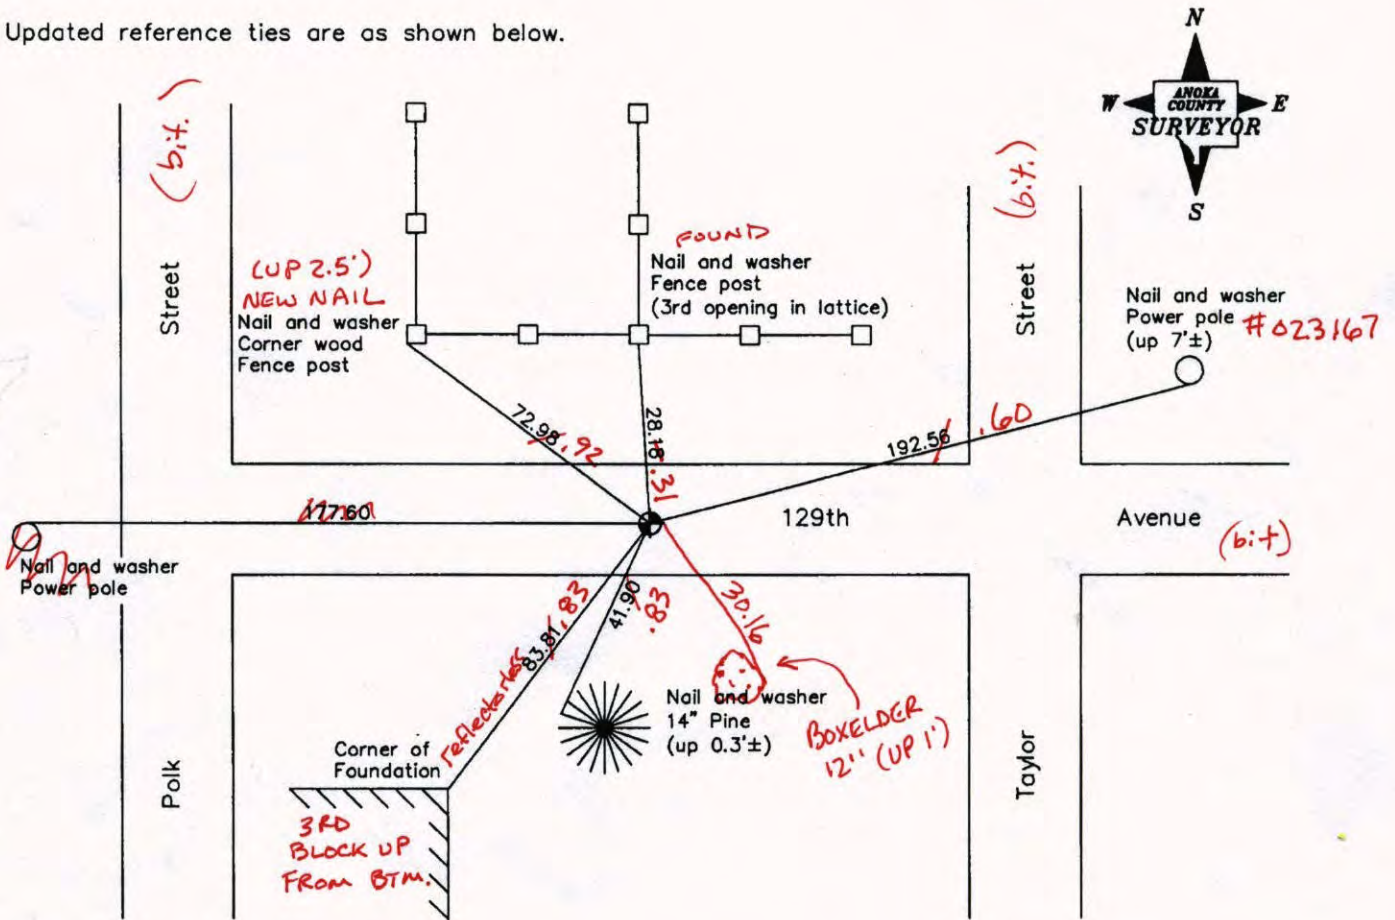 Updated reference ties are as shown below.
N
W
E
S
ANOKA
COUNTY
SURVEYOR
(bit.)
Street
(bit.)
Street
(UP 2.5')
NEW NAIL
Nail and washer
Corner wood
Fence post
FOUND
Nail and washer
Fence post
(3rd opening in lattice)
Nail and washer
Power pole #023167
(up 7'±)
72.98 .92
28.18 .31
192.56 .60
177.60
129th
Avenue (bit)
Nail and washer
Power pole
83.81 .83
reflectorless
41.90 .83
30.16
Nail and washer
14" Pine
(up 0.3'±)
BOXELDER
12" (UP 1')
Corner of
Foundation
3RD
BLOCK UP
FROM BTM.
Polk
Taylor